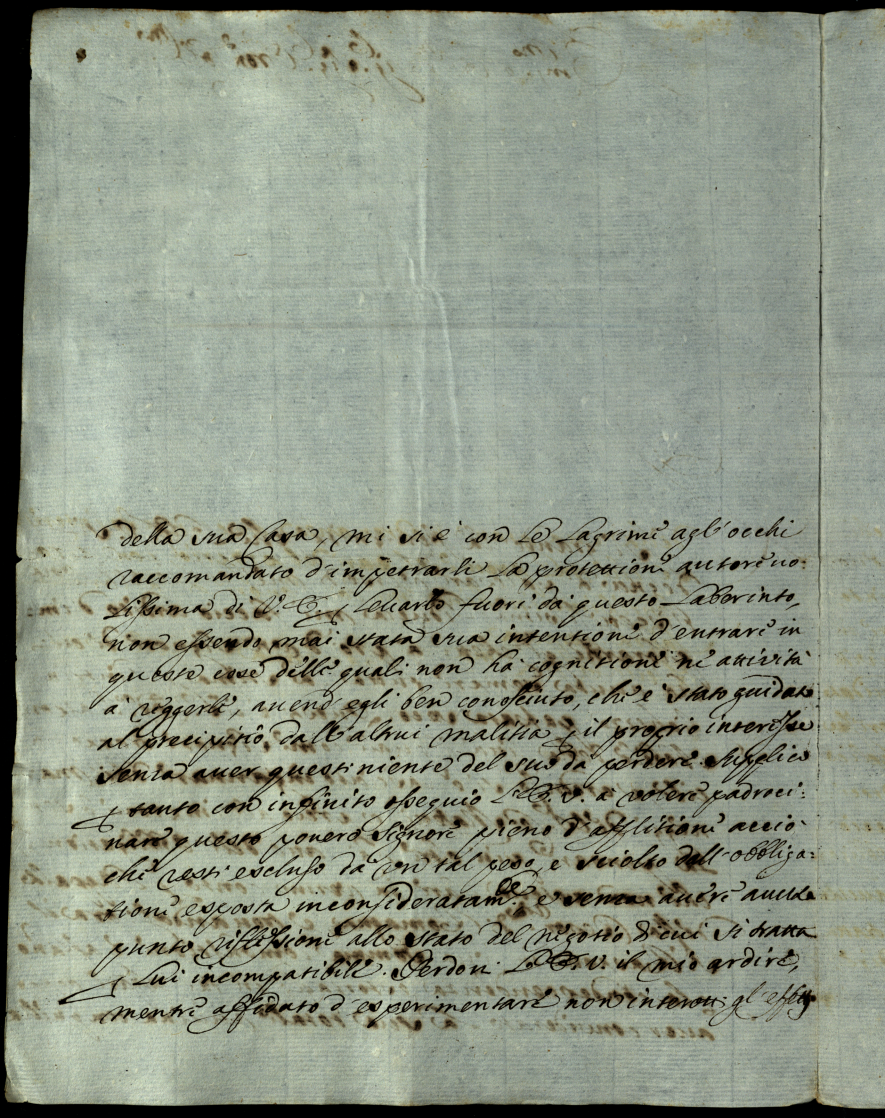 della sua Casa, mi si è con le lagrime agl'occhi
raccomandato d'impetrarli la protettione autoreuo:
lissima di V. E. p leuarlo fuori da questo Laberinto,
non essendo mai stata sua intentione d'entrare in
queste cose delle quali non hà cognitione nè attività
à reggerle, auend'egli ben conosciuto, che è stato guidato
al precipitio dall'altrui malitia p il proprio interesse
senza auer questi niente del suo da perdere. Supplico
p tanto con infinito ossequio l'E. V. à volere padroci:
nare questo pouero Signore pieno d'afflitione acciò
che resti escluso da un tal peso, e sciolto dall'obbliga:
tione esposta inconsideratam.te e senza auere auuto
punto riflessione allo stato del negotio di cui si tratta
p lui incompatibile. Perdoni l'E. V. il mio ardire,
mentre affidato d'esperimentare non interott: gl'effetti